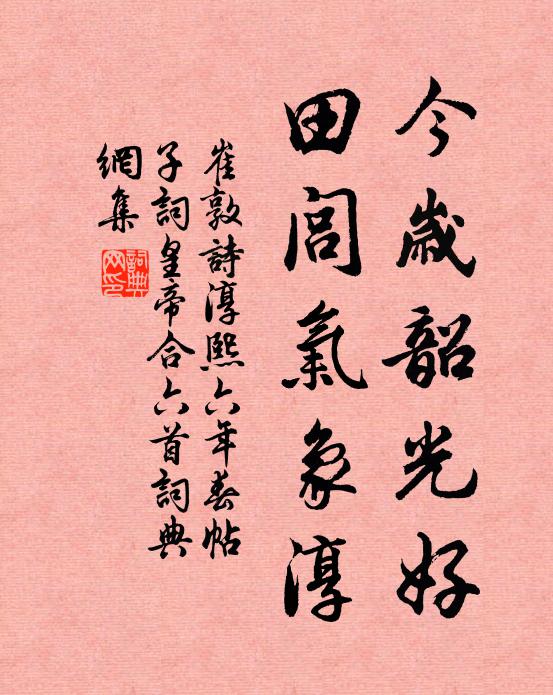 今歲韶光好
田閭氣象淳
崔敦詩淳熙六年春帖
子詞皇帝合六首詞典
網集
詞典網印